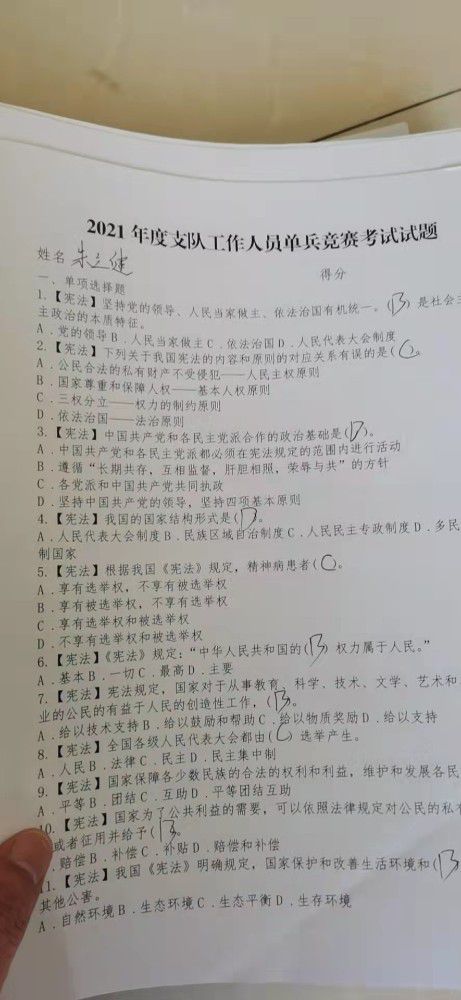 2021 年度支队工作人员单兵竞赛考试试题
姓名 朱立健
得分
一、单项选择题
1.【宪法】坚持党的领导、人民当家做主、依法治国有机统一。(B) 是社会主
主政治的本质特征。
A．党的领导 B．人民当家做主 C．依法治国 D．人民代表大会制度
2.【宪法】下列关于我国宪法的内容和原则的对应关系有误的是(C。
A．公民合法的私有财产不受侵犯——人民主权原则
B．国家尊重和保障人权——基本人权原则
C．三权分立——权力的制约原则
D．依法治国——法治原则
3.【宪法】中国共产党和各民主党派合作的政治基础是(D)。
A．中国共产党和各民主党派都必须在宪法规定的范围内进行活动
B．遵循“长期共存，互相监督，肝胆相照，荣辱与共”的方针
C．各党派和中国共产党共同执政
D．坚持中国共产党的领导，坚持四项基本原则
4.【宪法】我国的国家结构形式是(B。
A．人民代表大会制度 B．民族区域自治制度 C．人民民主专政制度 D．多民
制国家
5.【宪法】根据我国《宪法》规定，精神病患者(C。
A．享有选举权，不享有被选举权
B．享有被选举权，不享有选举权
C．享有选举权和被选举权
D．不享有选举权和被选举权
6.【宪法】《宪法》规定：“中华人民共和国的(B) 权力属于人民。”
A．基本 B．一切 C．最高 D．主要
7.【宪法】宪法规定，国家对于从事教育、科学、技术、文学、艺术和
业的公民的有益于人民的创造性工作，(B。
A．给以技术支持 B．给以鼓励和帮助 C．给以物质奖励 D．给以支持
8.【宪法】全国各级人民代表大会都由(C) 选举产生。
A．人民 B．法律 C．民主 D．民主集中制
9.【宪法】国家保障各少数民族的合法的权利和利益，维护和发展各民
A．平等 B．团结 C．互助 D．平等团结互助
10.【宪法】国家为了公共利益的需要，可以依照法律规定对公民的私有
或者征用并给予(B。
．赔偿 B．补偿 C．补贴 D．赔偿和补偿
11.【宪法】我国《宪法》明确规定，国家保护和改善生活环境和(B)
其他公害。
A．自然环境 B．生态环境 C．生态平衡 D．生存环境